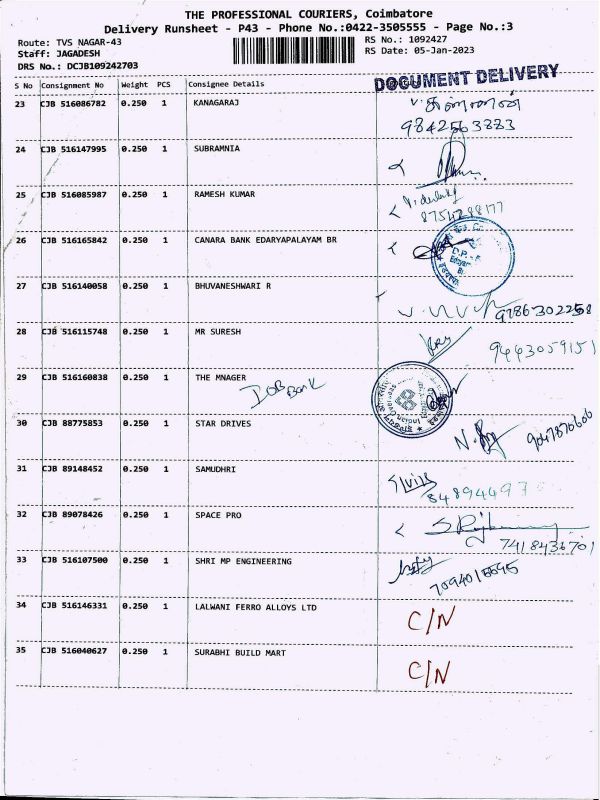 THE PROFESSIONAL COURIERS, Coimbatore
Delivery Runsheet - P43 - Phone No.:0422-3505555 - Page No.:3
Route: TVS NAGAR-43 RS No.: 1092427
Staff: JAGADESH RS Date: 05-Jan-2023
DRS No.: DCJB109242703
S No Consignment No Weight PCS Consignee Details DOCUMENT DELIVERY
23 CJB 516086782 0.250 1 KANAGARAJ
9842563883
24 CJB 516147995 0.250 1 SUBRAMNIA
25 CJB 516085987 0.250 1 RAMESH KUMAR
26 CJB 516165842 0.250 1 CANARA BANK EDARYAPALAYAM BR
27 CJB 516140058 0.250 1 BHUVANESHWARI R
9786302258
28 CJB 516115748 0.250 1 MR SURESH
9443059151
29 CJB 516160838 0.250 1 THE MNAGER
IOB Bank
30 CJB 88775853 0.250 1 STAR DRIVES
31 CJB 89148452 0.250 1 SAMUDHRI
32 CJB 89078426 0.250 1 SPACE PRO
7418436701
33 CJB 516107500 0.250 1 SHRI MP ENGINEERING
34 CJB 516146331 0.250 1 LALWANI FERRO ALLOYS LTD C/N
35 CJB 516040627 0.250 1 SURABHI BUILD MART C/N